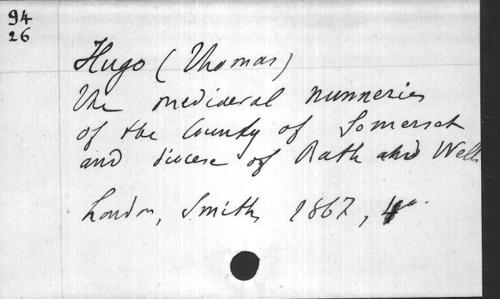 94
26
Hugo (Thomas)
The mediaeval nunneries
of the County of Somerset
and diocese of Bath and Wells
London, Smith, 1867, 4°.